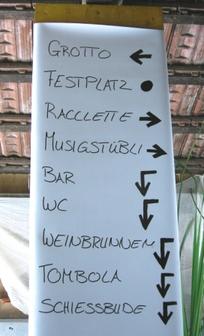 GROTTO ←
FESTPLATZ ●
RACLLETTE →
MUSIGSTÜBLI →
BAR ↓
WC ↓
WEINBRUNNEN ↓
TOMBOLA ↓
SCHIESSBUDE ↓